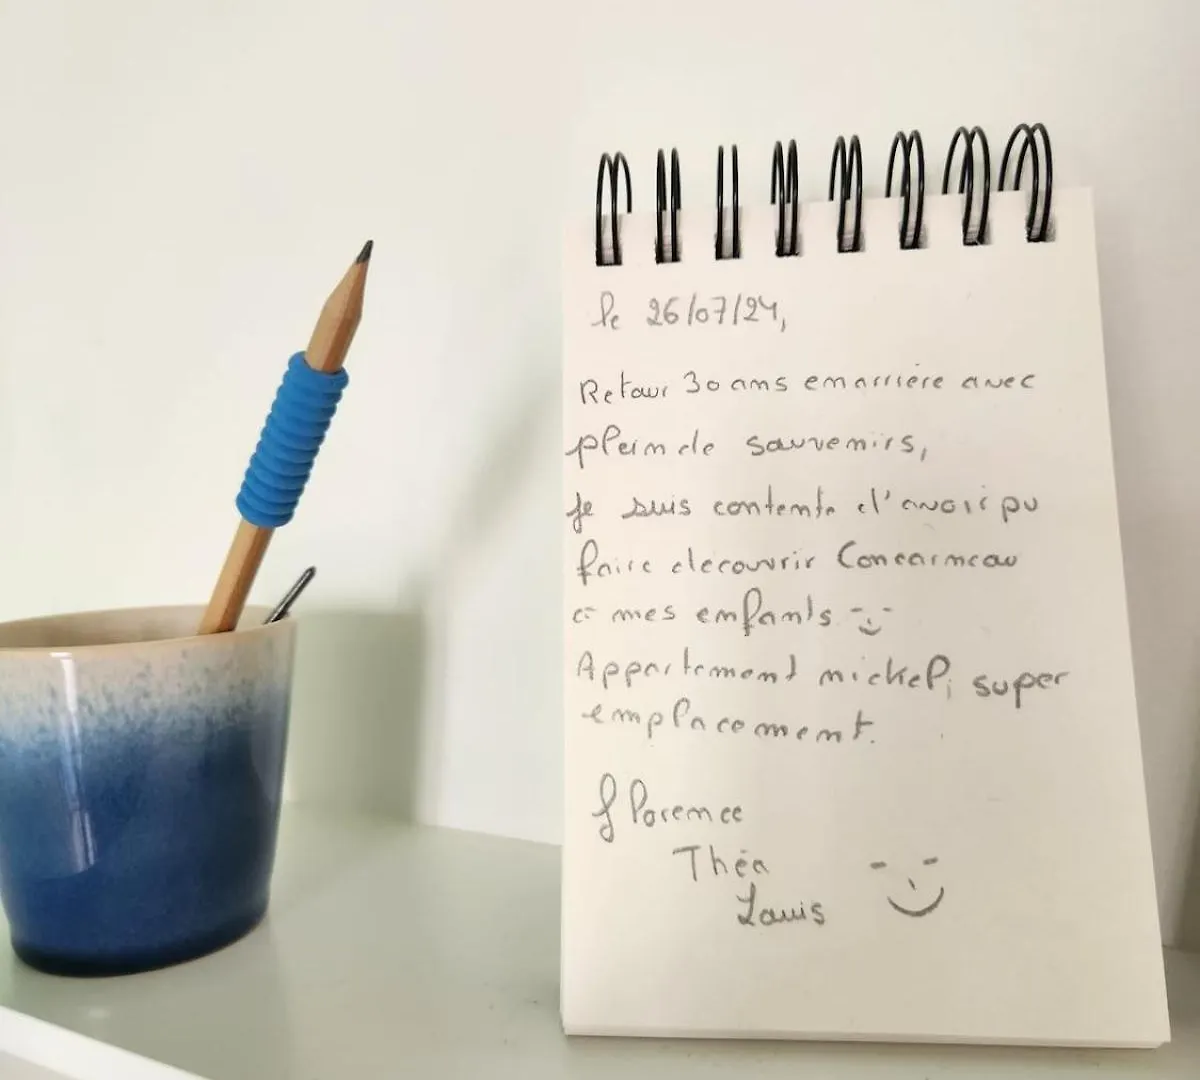 le 26/07/24,
Retour 30 ans en arrière avec
plein de souvenirs,
Je suis contente d'avoir pu
faire decouvrir Concarneau
à mes enfants
Appartement nickel, super
emplacement.
Florence
Théa
Louis